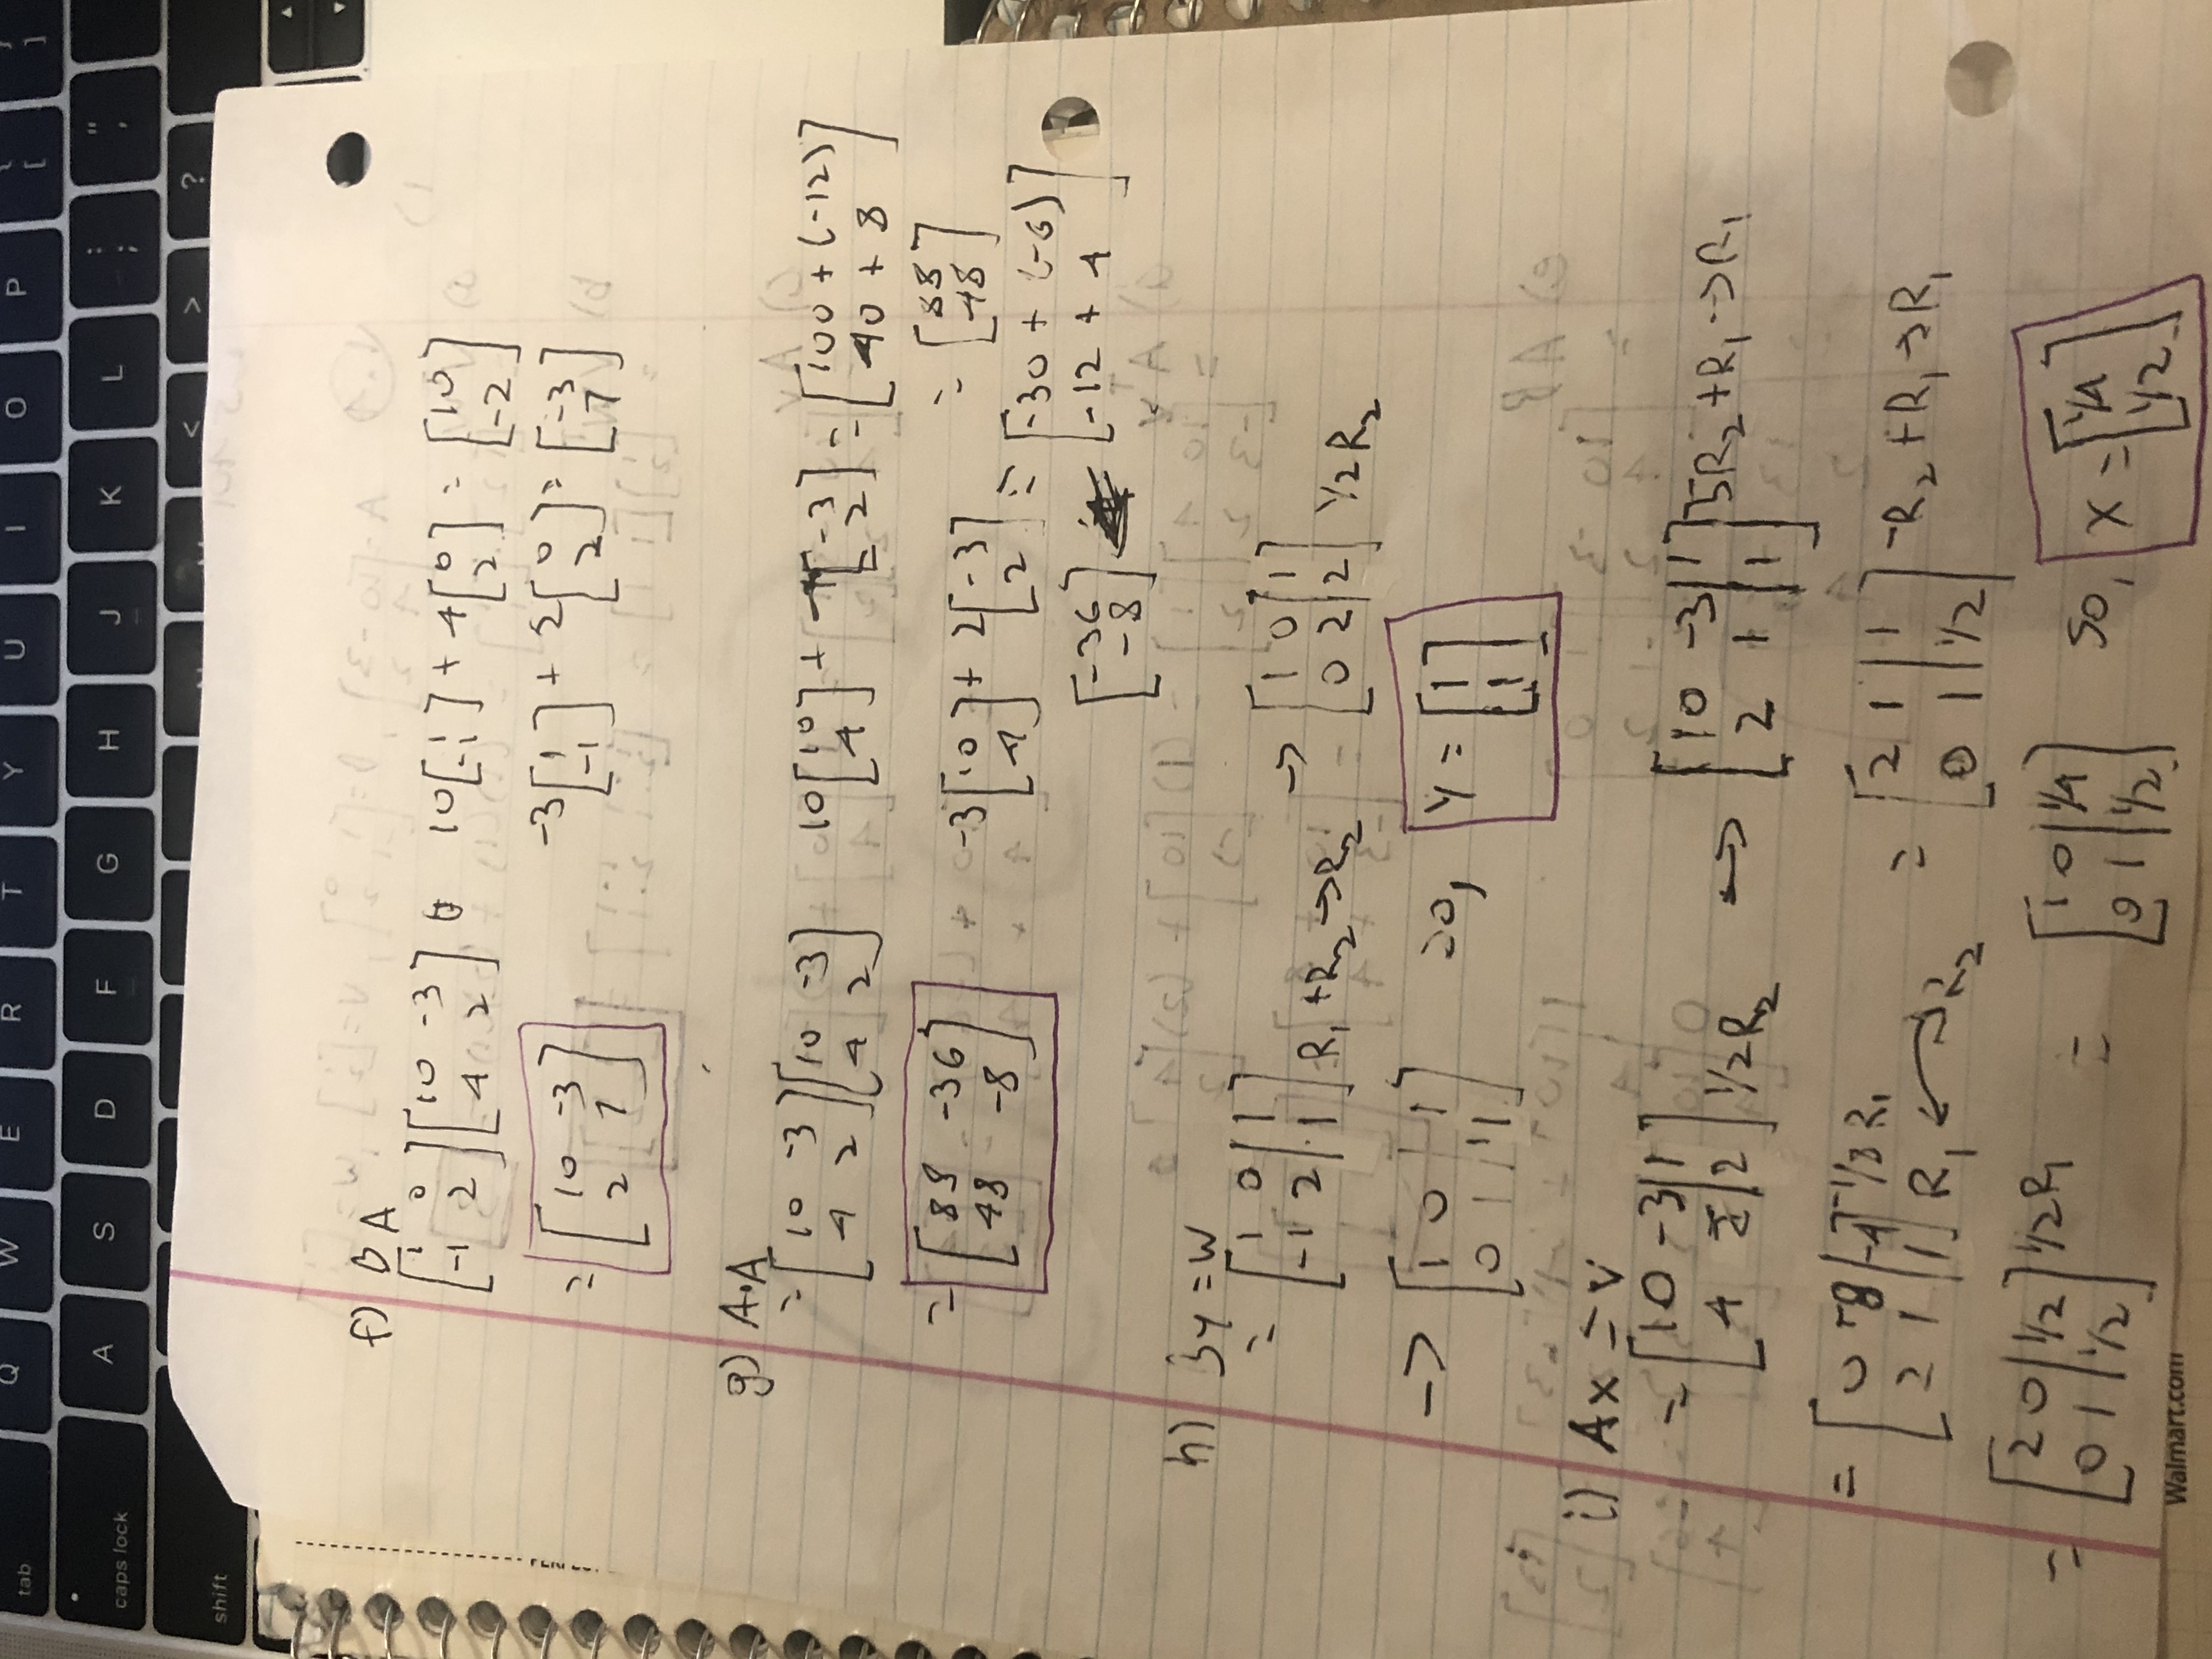 tab Q W E R T Y U I O P [ ]
caps lock A S D F G H J K L : ; " '
shift < > ?
f) B A
[1 0; -1 2] [10 -3; 4 2] 10[1; -1] + 4[0; 2] = [10; -2]
= [10 -3; 2 7] -3[1; -1] + 2[0; 2] = [-3; 7]
g) A·A
= [10 -3; 4 2] [10 -3; 4 2] 10[10; 4] + 4[-3; 2] = [100 + (-12); 40 + 8]
= [88 -36; 48 -8] = [88; 48]
-3[10; 4] + 2[-3; 2] = [-30 + (-6); -12 + 4]
[-36; -8]
h) By = w
= [1 0 | 1; -1 2 | 1] R1 + R2 → R2 → [1 0 | 1; 0 2 | 2] 1/2 R2
→ [1 0 | 1; 0 1 | 1] so, y = [1; 1]
i) Ax = v
= [10 -3 | 1; 4 2 | 2] 1/2 R2 → [10 -3 | 1; 2 1 | 1] -5R2 + R1 → R1
= [0 -8 | -4; 2 1 | 1] -1/8 R1 R1 ↔ R2 = [2 1 | 1; 0 1 | 1/2] -R2 + R1 → R1
= [2 0 | 1/2; 0 1 | 1/2] 1/2 R1 = [1 0 | 1/4; 0 1 | 1/2] so, x = [1/4; 1/2]
Walmart.com